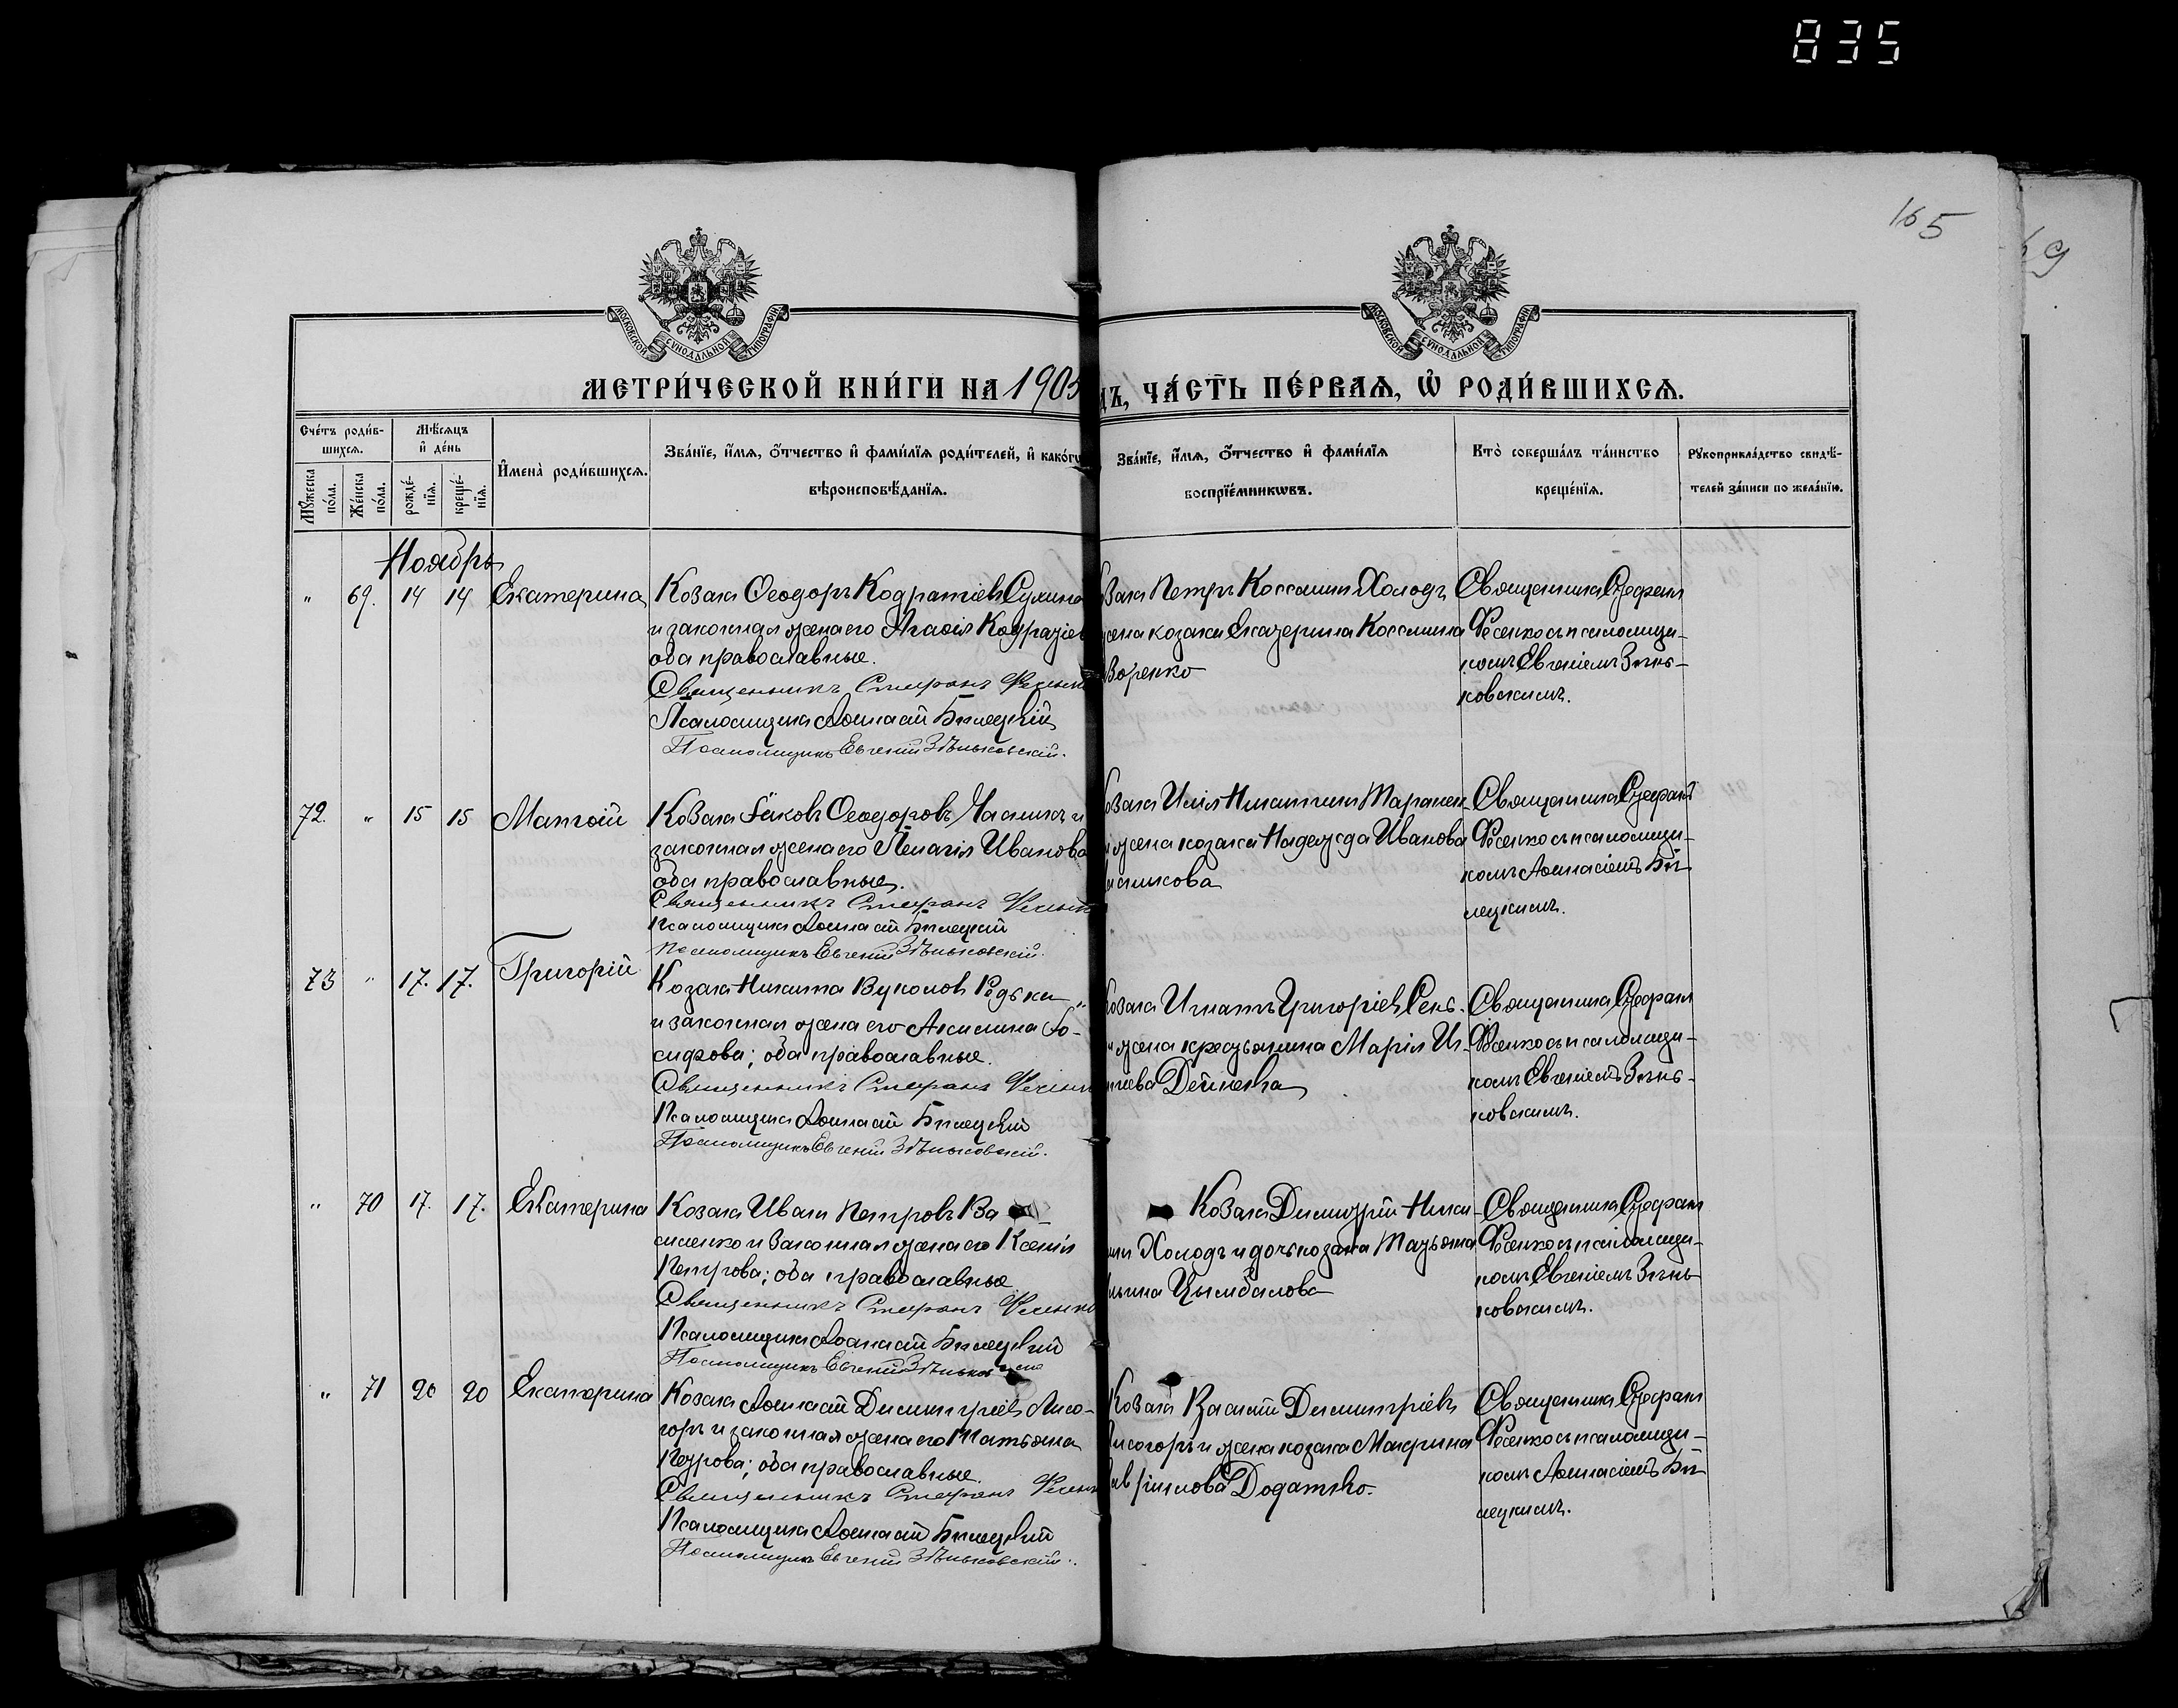 835
165
69
МОСКОВСКОЙ СѴНОДАЛЬНОЙ ТИПОГРАФІИ
МОСКОВСКОЙ СѴНОДАЛЬНОЙ ТИПОГРАФІИ
МЕТРИ́ЧЕСКОЙ КНИ́ГИ НА 1905
ДЪ, ЧА́СТЬ ПЕ́РВАѦ, Ѡ РОДИ́ВШИХСѦ.
Сче́тъ роди́в-
шихсѧ.
Мꙋ́жеска по́ла.
Же́нска по́ла.
Мѣ́сѧцъ
и҆ де́нь
рожде́-
нїѧ.
креще́-
нїѧ.
И҆мена̀ роди́вшихсѧ.
Зва́нїе, и҆́мѧ, о҆́тчество и҆ фами́лїѧ роди́телей, и҆ како́гѡ
вѣроисповѣ́данїѧ.
Зва́нїе, и҆́мѧ, о҆́тчество и҆ фами́лїѧ
воспрїе́мникѡвъ.
Кто̀ соверша́лъ та́инство
креще́нїѧ.
Рꙋкоприкла́дство свидѣ́-
телей за́писи по жела́нїю.
Ноябрь
" 69. 14 14 Екатерина
Козакъ Ѳеодоръ Кодратіевъ
и законная жена его Агаѳія
оба православные.
Священникъ Стефанъ Фесенко
Псаломщикъ Аѳанасій Билецкій
Псаломщикъ Евгеній Зѣньковскій.
Петръ Косминъ Холодъ
жена козака Екатерина Космина
Священникъ Стефанъ
Фесенко съ псаломщи-
комъ Евгеніемъ Зѣнь-
ковскимъ.
72. " 15 15 Матѳій
Козакъ Іаковъ Ѳеодоровъ и
законная жена его Пелагія Иванова
оба православные.
Священникъ Стефанъ Фесенко
Псаломщикъ Аѳанасій Билецкій
Псаломщикъ Евгеній Зѣньковскій.
Илія
жена козака Надежда Иванова
Священникъ Стефанъ
Фесенко съ псаломщи-
комъ Аѳанасіемъ Би-
лецкимъ.
73 " 17. 17. Григорій
Козакъ Никита Вуколовъ Редька
и законная жена его Акилина Іо-
сифова; оба православные.
Священникъ Стефанъ Фесенко
Псаломщикъ Аѳанасій Билецкій
Псаломщикъ Евгеній Зѣньковскій.
Козакъ Игнатъ Григоріевъ
жена крестьянина Марія
Дейнека
Священникъ Стефанъ
Фесенко съ псаломщи-
комъ Евгеніемъ Зѣнь-
ковскимъ.
" 70 17. 17. Екатерина
Козакъ Иванъ Петровъ Ва-
силенко и законная жена его Ксенія
Петрова; оба православные
Священникъ Стефанъ Фесенко
Псаломщикъ Аѳанасій Билецкій
Псаломщикъ Евгеній
Козакъ Димитрій
Холодъ и дочь козака Татьяна
Цымбалова
Священникъ Стефанъ
Фесенко съ псаломщи-
комъ Евгеніемъ Зѣнь-
ковскимъ.
" 71 20 20 Екатерина
Козакъ Аѳанасій Димитріевъ Лисо-
горъ и законная жена его Татьяна
Петрова; оба православные.
Священникъ Стефанъ Фесенко
Псаломщикъ Аѳанасій Билецкій
Псаломщикъ Евгеній Зѣньковскій.
Козакъ Василій Димитріевъ
Лисогоръ и жена козака Макрина
Додатко
Священникъ Стефанъ
Фесенко съ псаломщи-
комъ Аѳанасіемъ Би-
лецкимъ.